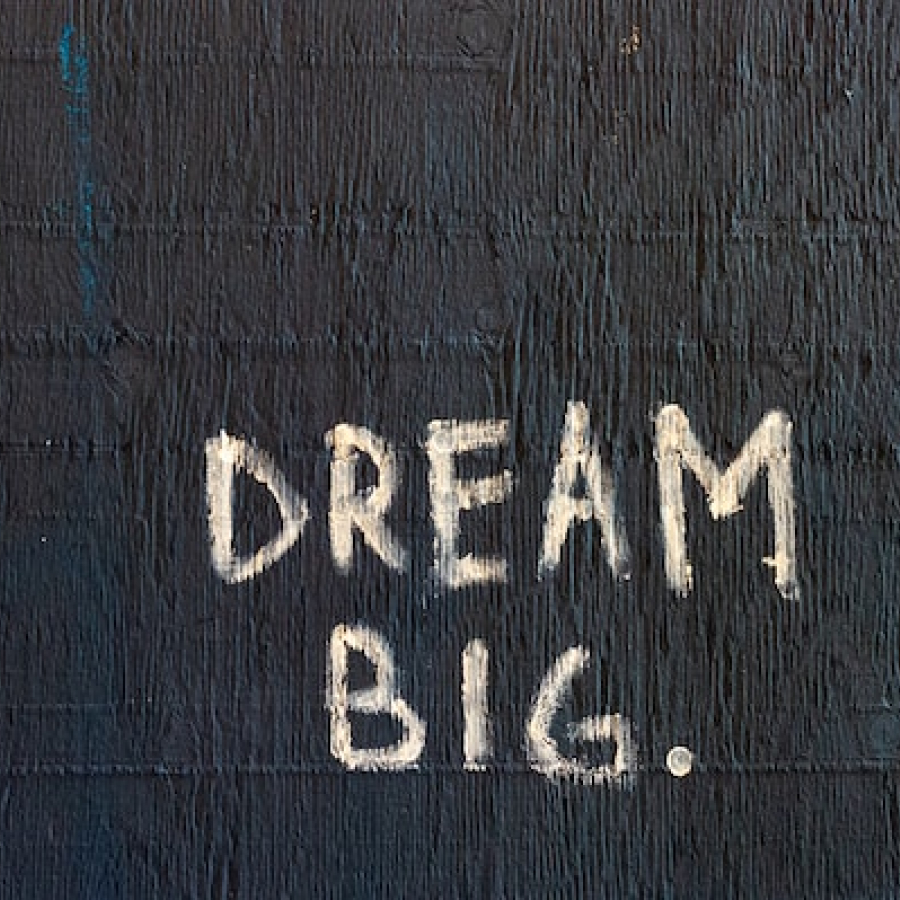 DREAM
BIG.